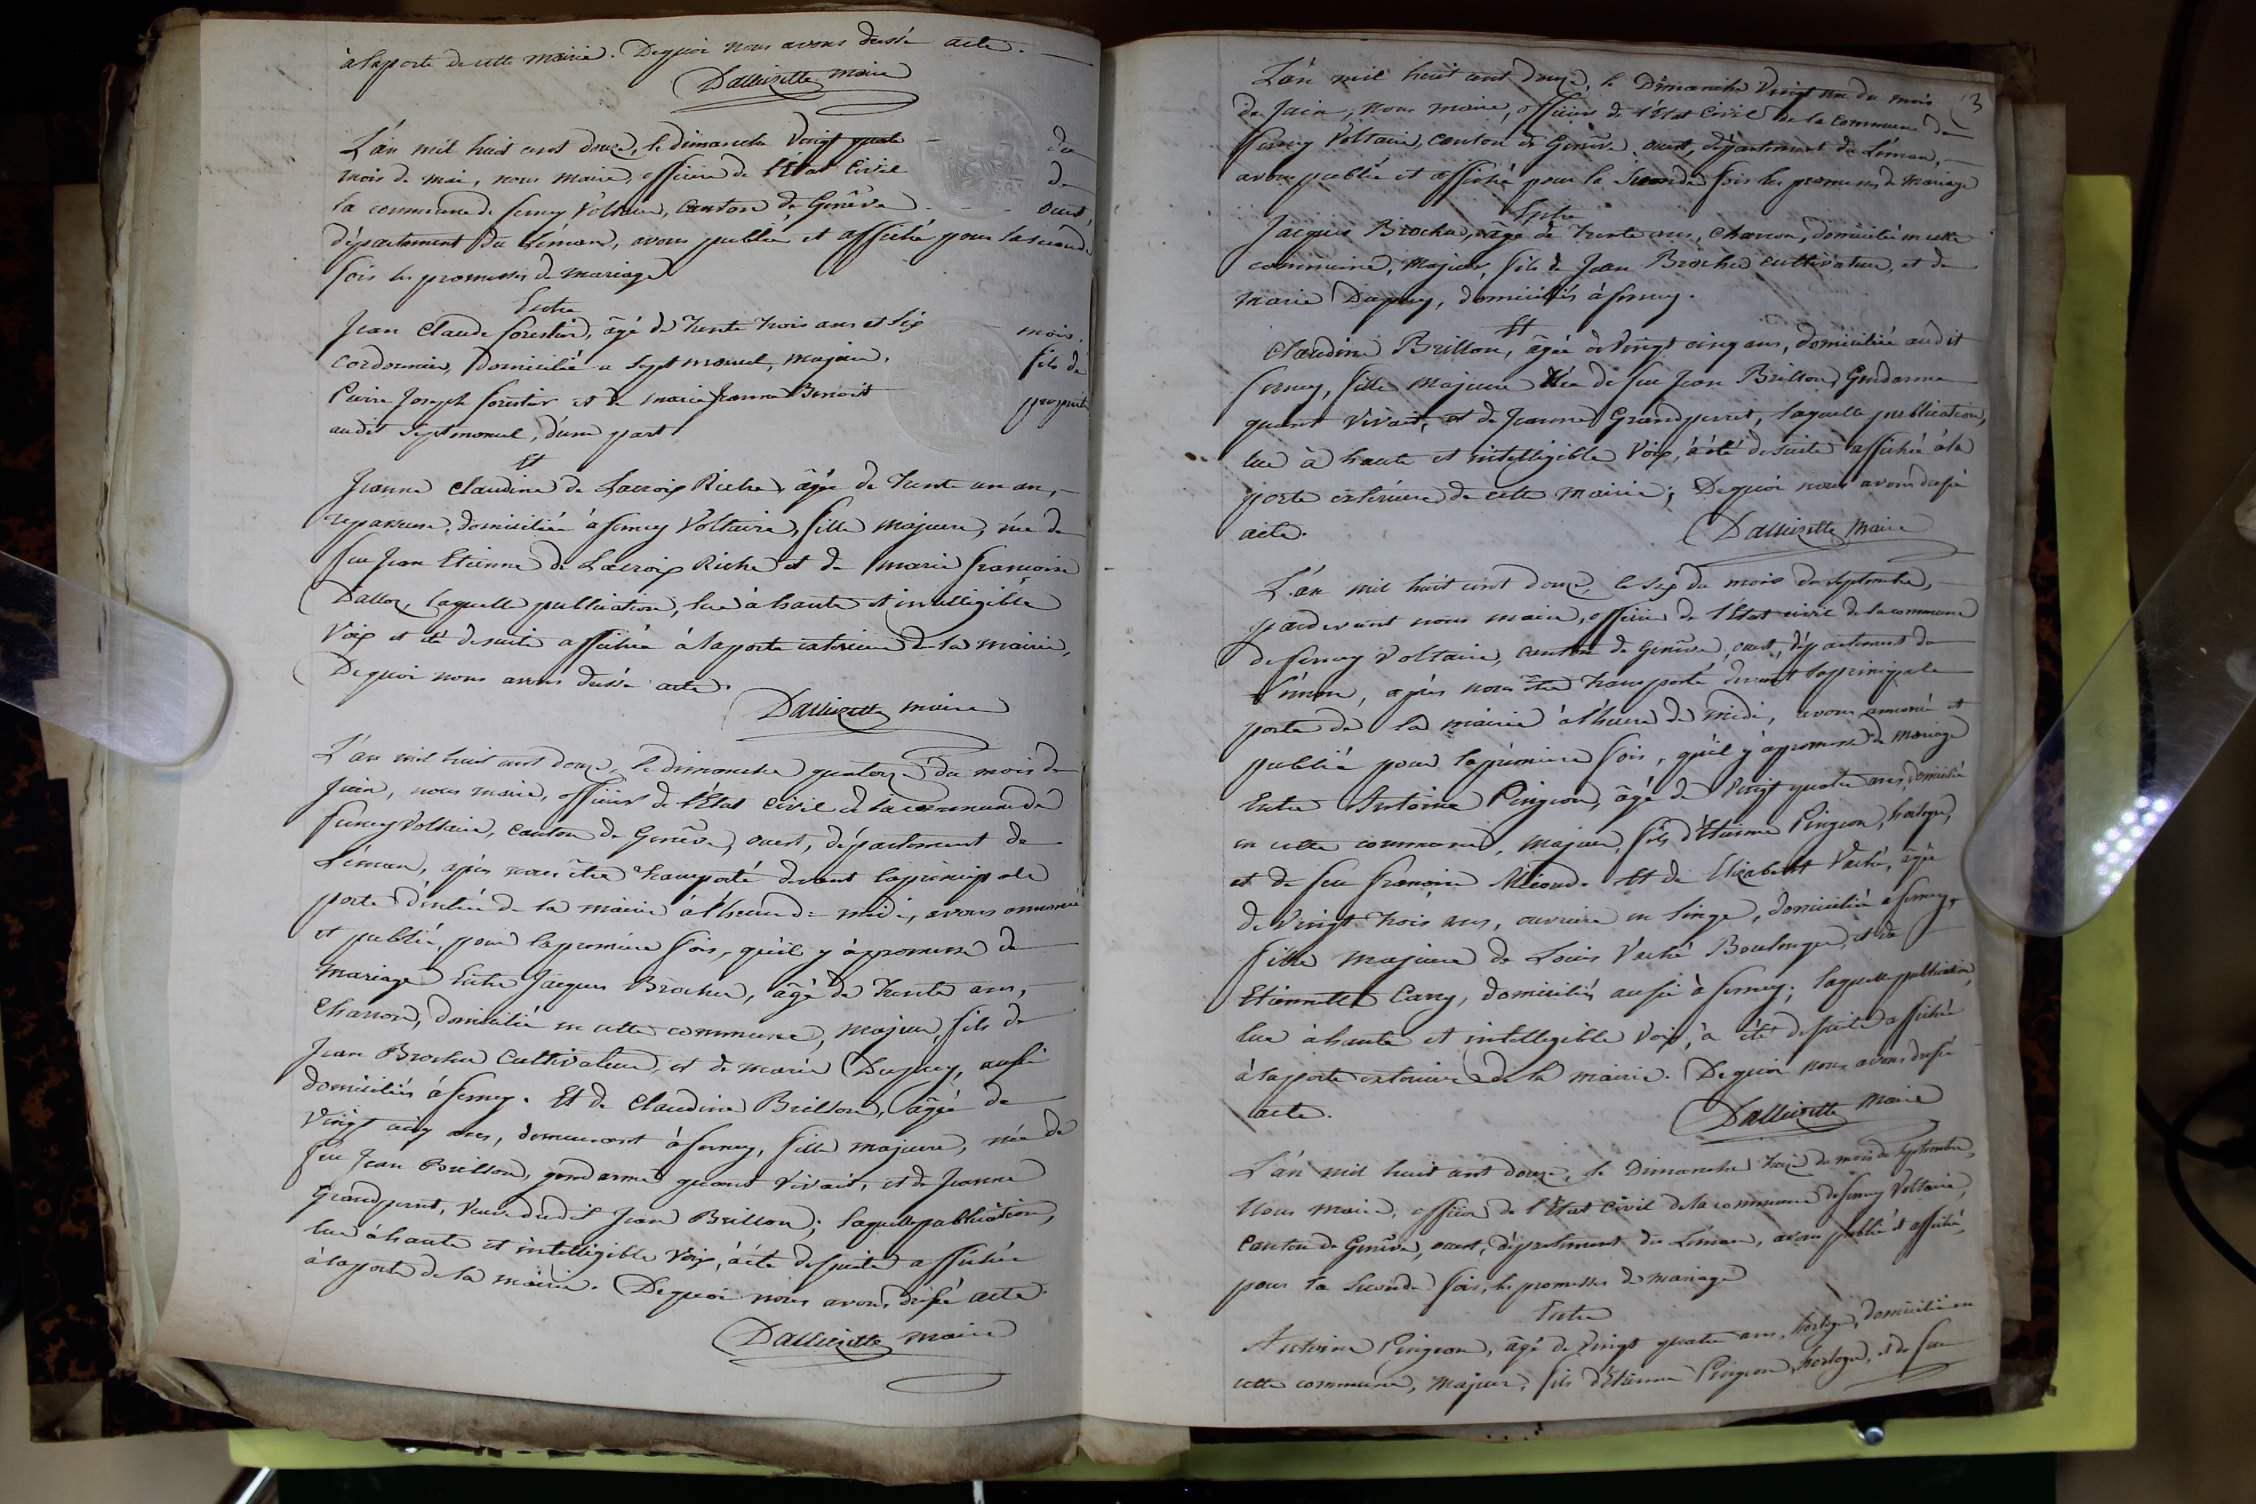 à la porte de cette mairie. De quoi nous avons dressé acte.
Dallizette maire
L'an mil huit cent douze, le dimanche vingt quatre du
mois de mai, nous maire, officier de l'Etat Civil de
la commune de ferney Voltaire, canton de Genêve ouest,
département du Léman, avons publié et affiché pour la seconde
fois les promesses de mariage
Entre
Jean Claude forestier, âgé de trente trois ans et six mois,
cordonnier, domicilié a Septmoncel, majeur, fils de
Pierre Joseph forestier et de marie Jeanne Benoit
audit Septmoncel, d'une part
Et
Jeanne Claudine de Lacroix Riche, âgée de trente un an,
repasseuse, domiciliée à ferney Voltaire, fille majeure, née de
feu Jean Etienne de Lacroix Riche et de marie francoise
Dalloz, laquelle publication, lue à haute et intelligible
voix et été de suite affichée à la porte exterieure de la mairie,
De quoi nous avons dressé acte.
Dallizette maire
L'an mil huit cent douze, le dimanche quatorze du mois de
Juin, nous maire, officier de l'Etat Civil de la commune de
ferney Voltaire, canton de Genêve, ouest, département du
Léman, après nous être transporté devant la principale
porte d'entrée de la mairie à l'heure de midi, avons annoncé
et publié, pour la premiere fois, qu'il y à promesse de
mariage entre Jacques Brochu, âgé de trente ans,
Charron, domicilié en cette commune, majeur, fils de
Jean Brochu Cultivateur, et de marie Dupuy, aussi
domiciliés à ferney. Et de Claudine Brillon, âgée de
vingt cinq ans, demeurant à ferney, fille majeure, née de
feu Jean Brillon, gendarme quand vivait, et de Jeanne
Grandperret, veuve dudit Jean Brillon; laquelle publication,
lue à haute et intelligible voix, à été de suite affichée
à la porte de la mairie. De quoi nous avons dressé acte.
Dallizette maire
13
L'an mil huit cent douze, le Dimanche vingt un du mois
de Juin, nous maire, officier de l'Etat Civil de la commune de
ferney Voltaire, canton de Genêve, ouest, département du Léman,
avons publié et affiché pour la seconde fois les promesses de mariage
Entre
Jacques Brochu, âgé de trente ans, charron, domicilié en cette
commune, majeur, fils de Jean Brochu cultivateur, et de
marie Dupuy, domiciliés à ferney.
Et
Claudine Brillon, âgée de vingt cinq ans, domiciliée audit
ferney, fille majeure née de feu Jean Brillon, Gendarme
quand vivait, et de Jeanne Grandperret, laquelle publication,
lue à haute et intelligible voix, à été de suite affichée à la
porte extérieure de cette mairie; De quoi nous avons dressé
acte.
Dallizette maire
L'an mil huit cent douze, le six du mois de septembre,
pardevant nous maire, officier de l'Etat civil de la commune
de ferney Voltaire, canton de Genêve, ouest, département du
Léman, après nous être transporté devant la principale
porte de la mairie à l'heure de midi, avons annoncé et
publié pour la premiere fois, qu'il y à promesse de mariage
Entre Antoine Pingeon, âgé de vingt quatre ans, domicilié
en cette commune, majeur, fils d'Etienne Pingeon, horloger,
et de feu francoise . Et de Elizabeth Vaché, âgée
de vingt trois ans, ouvriere en linge, domiciliée a ferney,
fille majeure de Louis Vaché Boulanger, et de
Etiennette Carry, domiciliés aussi à ferney; laquelle publication,
lue à haute et intelligible voix, à été de suite affichée
à la porte exterieure de la mairie. De quoi nous avons dressé
acte.
Dallizette Maire
L'an mil huit cent douze, le Dimanche treize du mois de septembre,
Nous maire, officier de l'Etat Civil de la commune de ferney Voltaire,
Canton de Genêve, ouest, département du Léman, avons publié et affiché,
pour la seconde fois, les promesses de mariage
Entre
Antoine Pingeon, âgé de vingt quatre ans, horloger, domicilié en
cette commune, majeur, fils d'Etienne Pingeon, horloger, et de feu